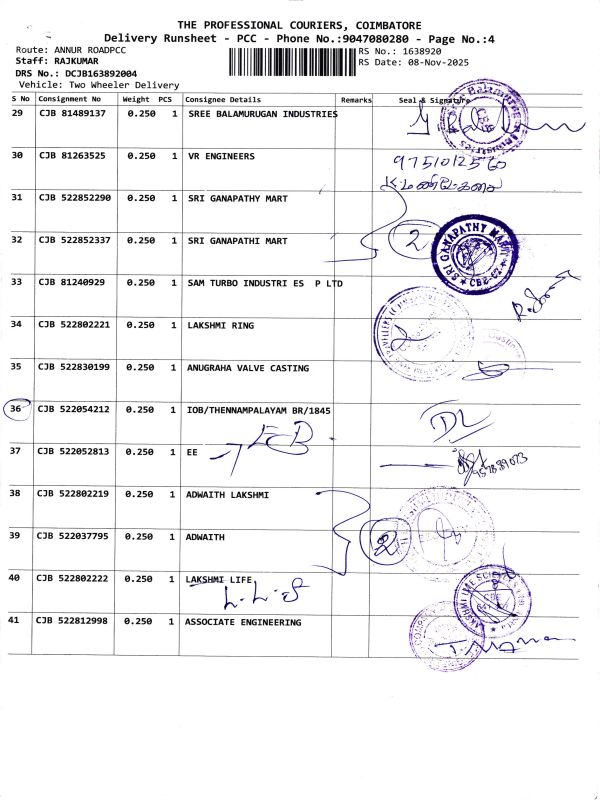 THE PROFESSIONAL COURIERS, COIMBATORE
Delivery Runsheet - PCC - Phone No.:9047080280 - Page No.:4
Route: ANNUR ROADPCC RS No.: 1638920
Staff: RAJKUMAR RS Date: 08-Nov-2025
DRS No.: DCJB163892004
Vehicle: Two Wheeler Delivery
S No Consignment No Weight PCS Consignee Details Remarks Seal & Signature
29 CJB 81489137 0.250 1 SREE BALAMURUGAN INDUSTRIES
30 CJB 81263525 0.250 1 VR ENGINEERS
31 CJB 522852290 0.250 1 SRI GANAPATHY MART
32 CJB 522852337 0.250 1 SRI GANAPATHI MART 2
SRI GANAPATHY MART CBE-62
33 CJB 81240929 0.250 1 SAM TURBO INDUSTRI ES P LTD
34 CJB 522802221 0.250 1 LAKSHMI RING
35 CJB 522830199 0.250 1 ANUGRAHA VALVE CASTING
36 CJB 522054212 0.250 1 IOB/THENNAMPALAYAM BR/1845 DL
37 CJB 522052813 0.250 1 EE
38 CJB 522802219 0.250 1 ADWAITH LAKSHMI
39 CJB 522037795 0.250 1 ADWAITH 2
40 CJB 522802222 0.250 1 LAKSHMI LIFE
41 CJB 522812998 0.250 1 ASSOCIATE ENGINEERING